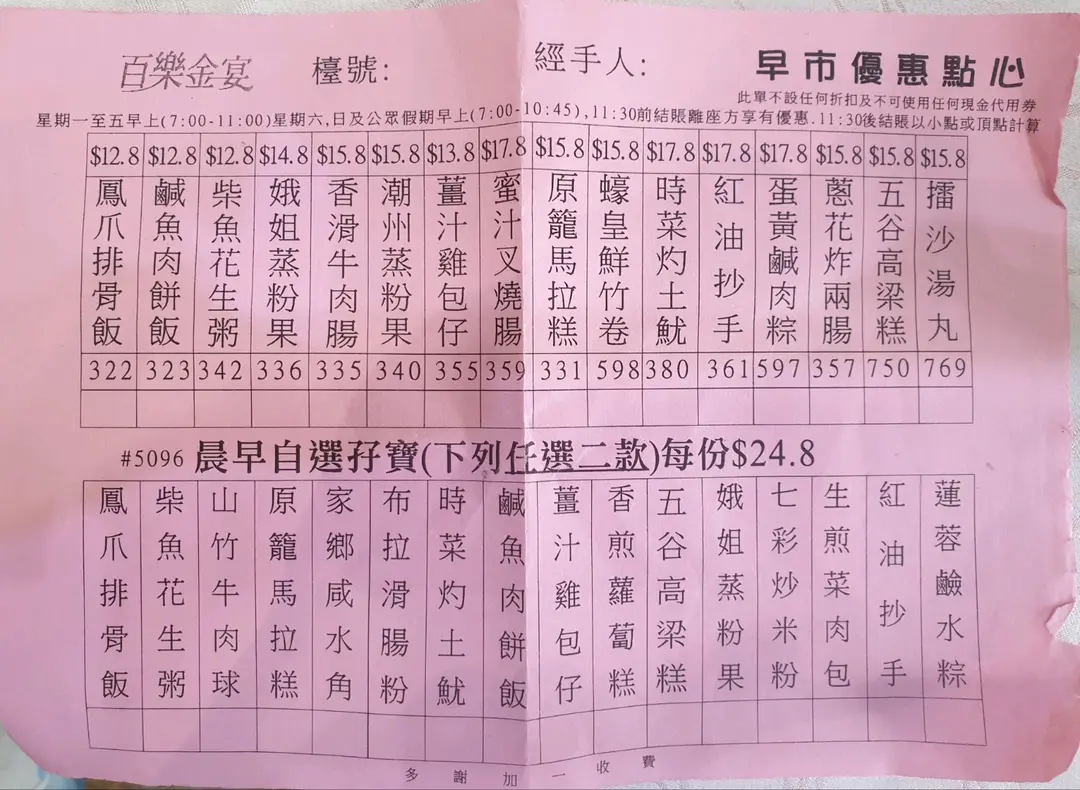 百樂金宴 檯號: 經手人: 早市優惠點心
此單不設任何折扣及不可使用任何現金代用券
星期一至五早上(7:00-11:00)星期六,日及公眾假期早上(7:00-10:45),11:30前結賬離座方享有優惠.11:30後結賬以小點或頂點計算
$12.8 $12.8 $12.8 $14.8 $15.8 $15.8 $13.8 $17.8 $15.8 $15.8 $17.8 $17.8 $17.8 $15.8 $15.8 $15.8
鳳爪排骨飯
鹹魚肉餅飯
柴魚花生粥
娥姐蒸粉果
香滑牛肉腸
潮州蒸粉果
薑汁雞包仔
蜜汁叉燒腸
原籠馬拉糕
蠔皇鮮竹卷
時菜灼土魷
紅油抄手
蛋黃鹹肉粽
蔥花炸兩腸
五谷高梁糕
擂沙湯丸
322 323 342 336 335 340 355 359 331 598 380 361 597 357 750 769
#5096 晨早自選孖寶(下列任選二款)每份$24.8
鳳爪排骨飯
柴魚花生粥
山竹牛肉球
原籠馬拉糕
家鄉咸水角
布拉滑腸粉
時菜灼土魷
鹹魚肉餅飯
薑汁雞包仔
香煎蘿蔔糕
五谷高梁糕
娥姐蒸粉果
七彩炒米粉
生煎菜肉包
紅油抄手
蓮蓉鹼水粽
多謝加一收費